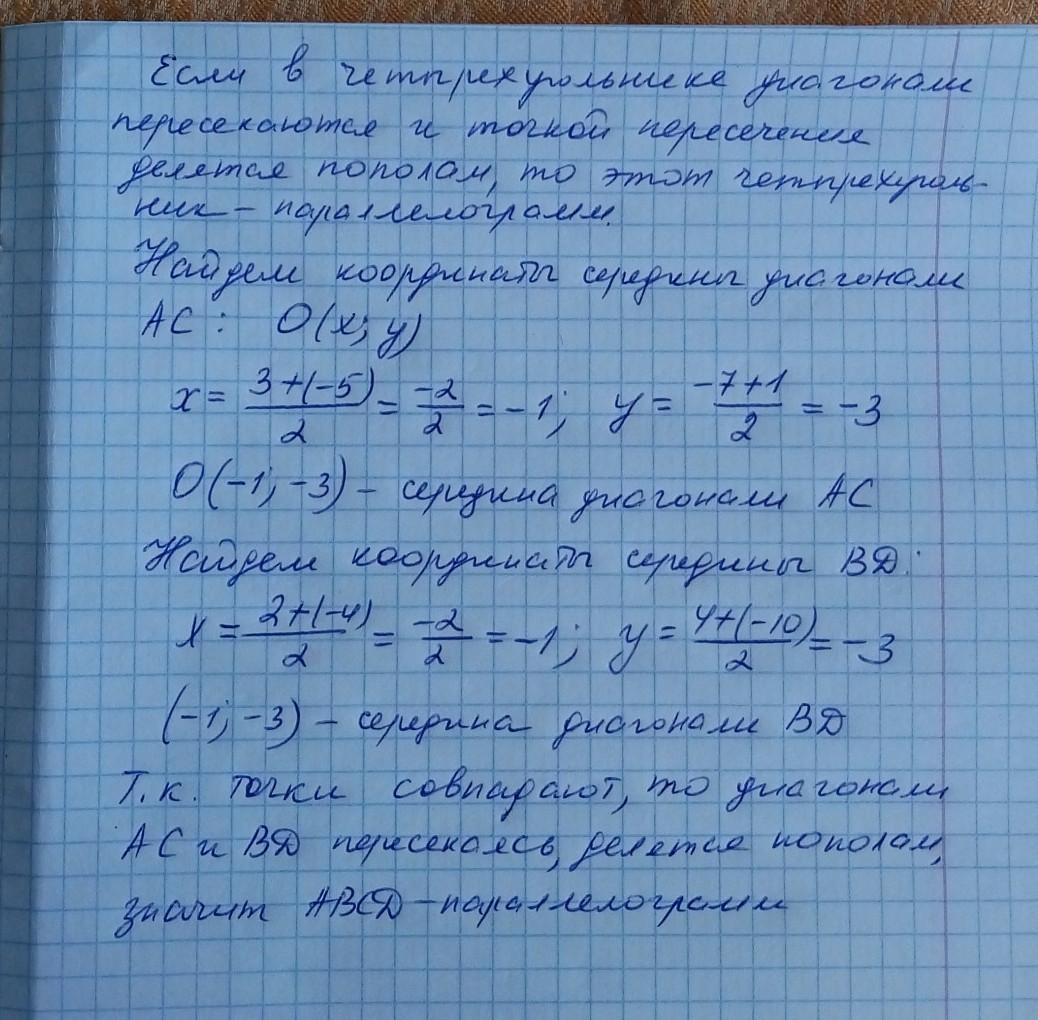 Если в четырехугольнике диагонали
пересекаются и точкой пересечения
делятся пополам, то этот четырехуголь-
ник – параллелограмм.
Найдем координаты середины диагонали
AC: O(x; y)
x = \frac{3+(-5)}{2} = \frac{-2}{2} = -1; y = \frac{-7+1}{2} = -3
O(-1; -3) – середина диагонали AC
Найдем координаты середины BD:
x = \frac{2+(-4)}{2} = \frac{-2}{2} = -1; y = \frac{4+(-10)}{2} = -3
(-1; -3) – середина диагонали BD
Т.к. точки совпадают, то диагонали
AC и BD пересекаясь, делятся пополам,
значит ABCD – параллелограмм